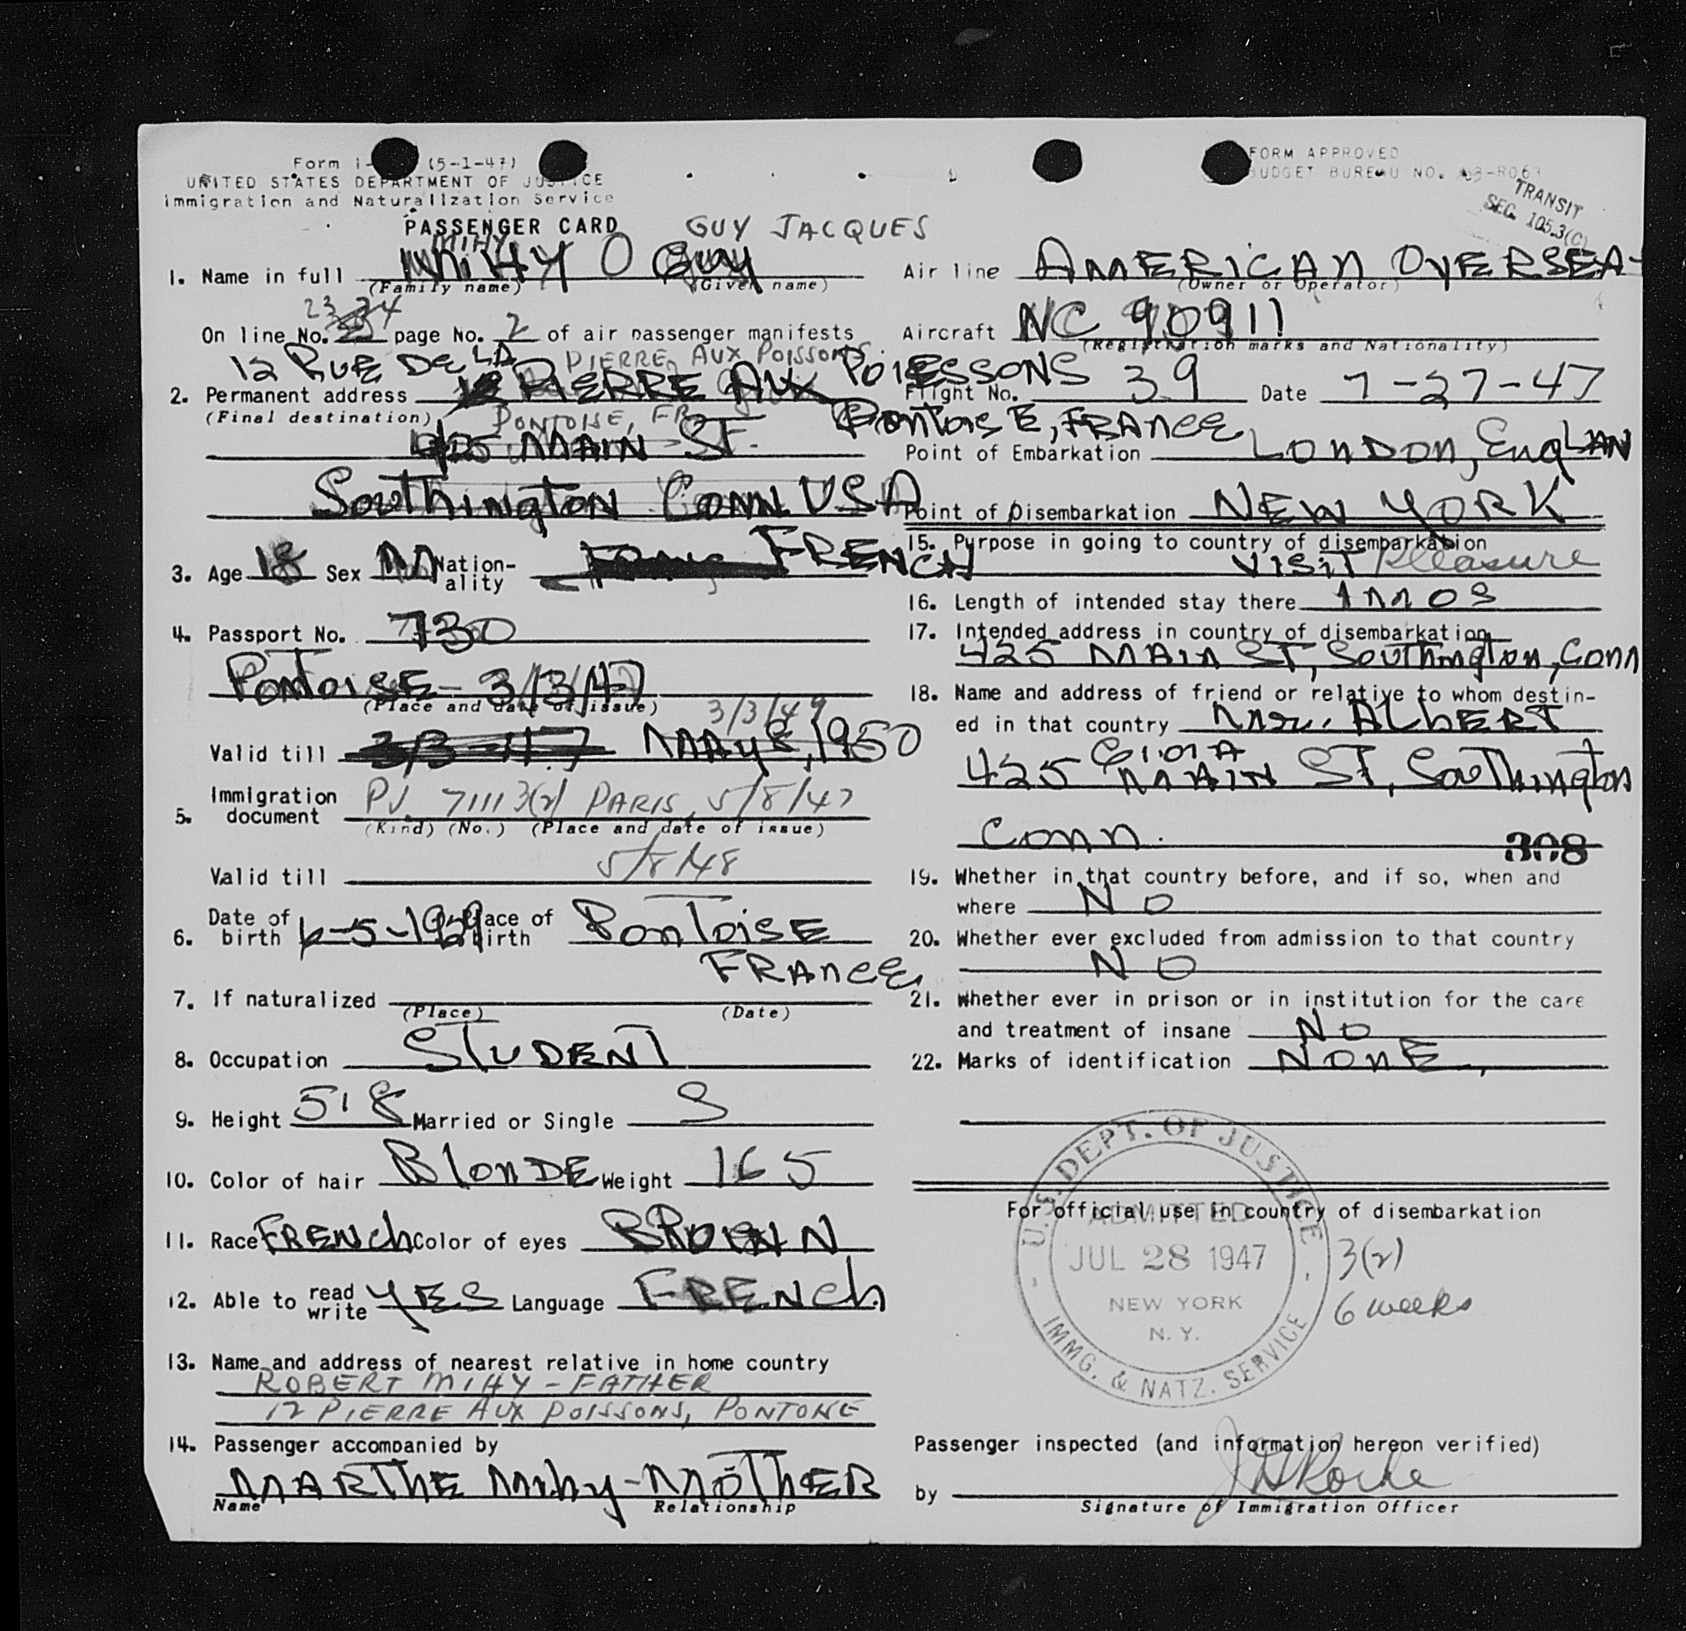 Form I- (5-1-47)
UNITED STATES DEPARTMENT OF JUSTICE
Immigration and Naturalization Service
PASSENGER CARD
FORM APPROVED
BUDGET BUREAU NO. 43-R063
TRANSIT
SEC. 105.3(C)
GUY JACQUES
MIHY
1. Name in full MIHY Guy
(Family name) (Given name)
23 34
On line No. page No. 2 of air passenger manifests
12 RUE DE LA PIERRE AUX POISSONS
2. Permanent address PIERRE AUX POISSONS
(Final destination) PONTOISE, FR. PONTOISE, FRANCE
425 MAIN ST.
Southington CONN USA
3. Age 18 Sex M Nationality FRENCH
4. Passport No. 730
PONTOISE - 3/3/47
(Place and date of issue)
3/3/49
Valid till 3/3-47 MAY 8, 1950
5. Immigration document PV 71113(2) PARIS, 5/8/47
(Kind) (No.) (Place and date of issue)
Valid till 5/8/48
6. Date of birth 6-5-1929 Place of birth PONTOISE
FRANCE
7. If naturalized
(Place) (Date)
8. Occupation STUDENT
9. Height 5'8 Married or Single S
10. Color of hair BlonDE Weight 165
11. Race FRENCh Color of eyes BROWN
12. Able to read write YES Language FRENCh
13. Name and address of nearest relative in home country
ROBERT MIHY - FATHER
12 PIERRE AUX POISSONS, PONTOISE
14. Passenger accompanied by
MARTHE Mihy - MOTHER
Name Relationship
Air line AMERICAN OVERSEA-
(Owner or Operator)
Aircraft NC 90911
(Registration marks and Nationality)
Flight No. 39 Date 7-27-47
Point of Embarkation LONDON, EnqLAN
Point of Disembarkation NEW YORK
15. Purpose in going to country of disembarkation
VISIT Pleasure
16. Length of intended stay there 1 mos
17. Intended address in country of disembarkation
425 MAIN ST, Southington, Conn
18. Name and address of friend or relative to whom destin-
ed in that country ALBERT
425 MAIN ST, Southington
Conn.
308
19. Whether in that country before, and if so, when and
where NO
20. Whether ever excluded from admission to that country
NO
21. Whether ever in prison or in institution for the care
and treatment of insane NO
22. Marks of identification NONE
For official use in country of disembarkation
U.S. DEPT. OF JUSTICE
ADMITTED
JUL 28 1947
NEW YORK
N. Y.
IMMG. & NATZ. SERVICE
3(2)
6 weeks
Passenger inspected (and information hereon verified)
by
Signature of Immigration Officer